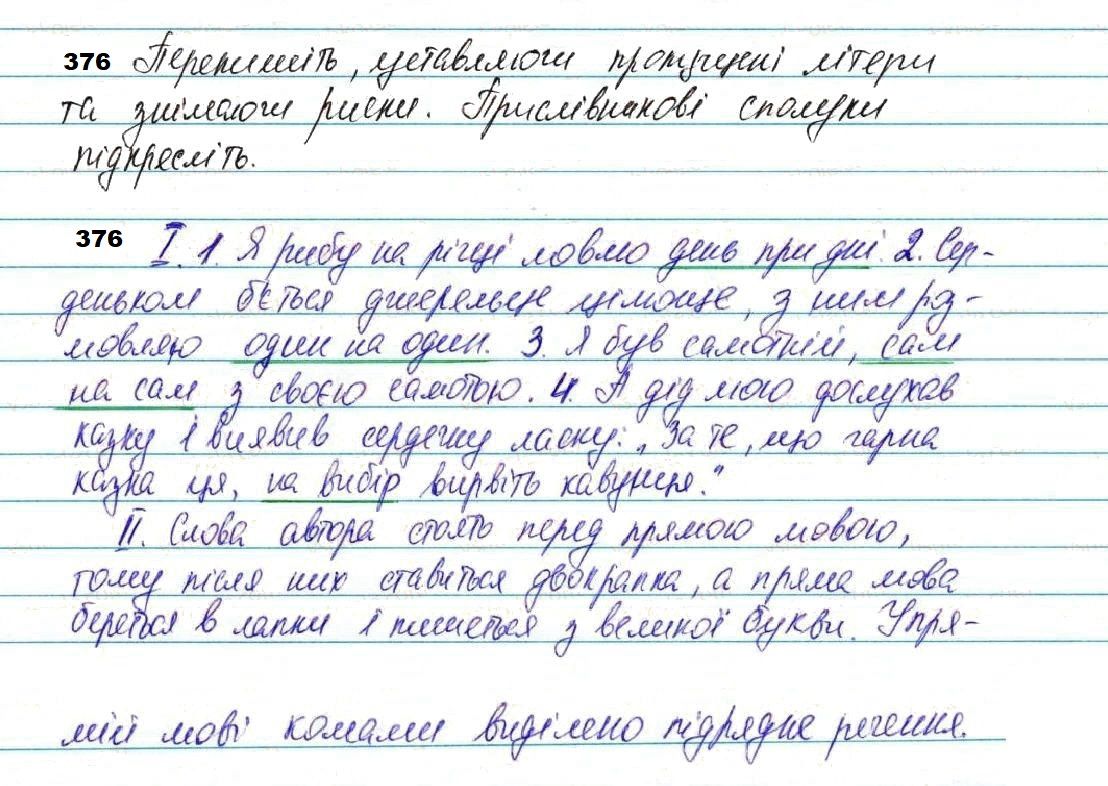 376 Перепишіть, уставляючи пропущені літери
та знімаючи риски. Прислівникові сполуки
підкресліть.
376 I. 1. Я рибу на річці ловлю день при дні. 2. Сер-
деньком б'ється джерельце цілюще, з ним роз-
мовляю один на один. 3. Я був самотній, сам
на сам з своєю самотою. 4. А дід мою дослухав
казку і виявив сердечну ласку: „За те, що гарна
казка ця, на вибір вирвіть кавунця."
II. Слова автора стоять перед прямою мовою,
тому після них ставиться двокрапка, а пряма мова
береться в лапки і пишеться з великої букви. У пря-
мій мові комами виділено підрядне речення.